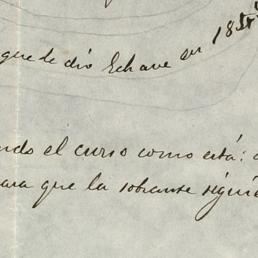 que le dio Echave en 18
ndo el curso como está:
para que la sobrante sigui